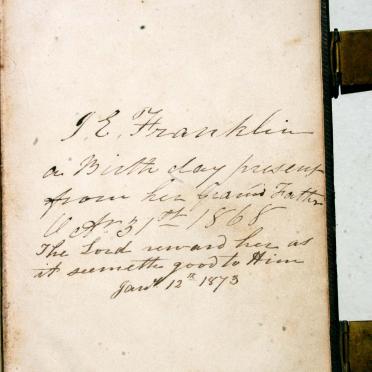 E. Franklin
a Birth day present
from her Grand Father
31st 1868
The Lord reward her as
it seemeth good to Him
Jany. 12th 1873